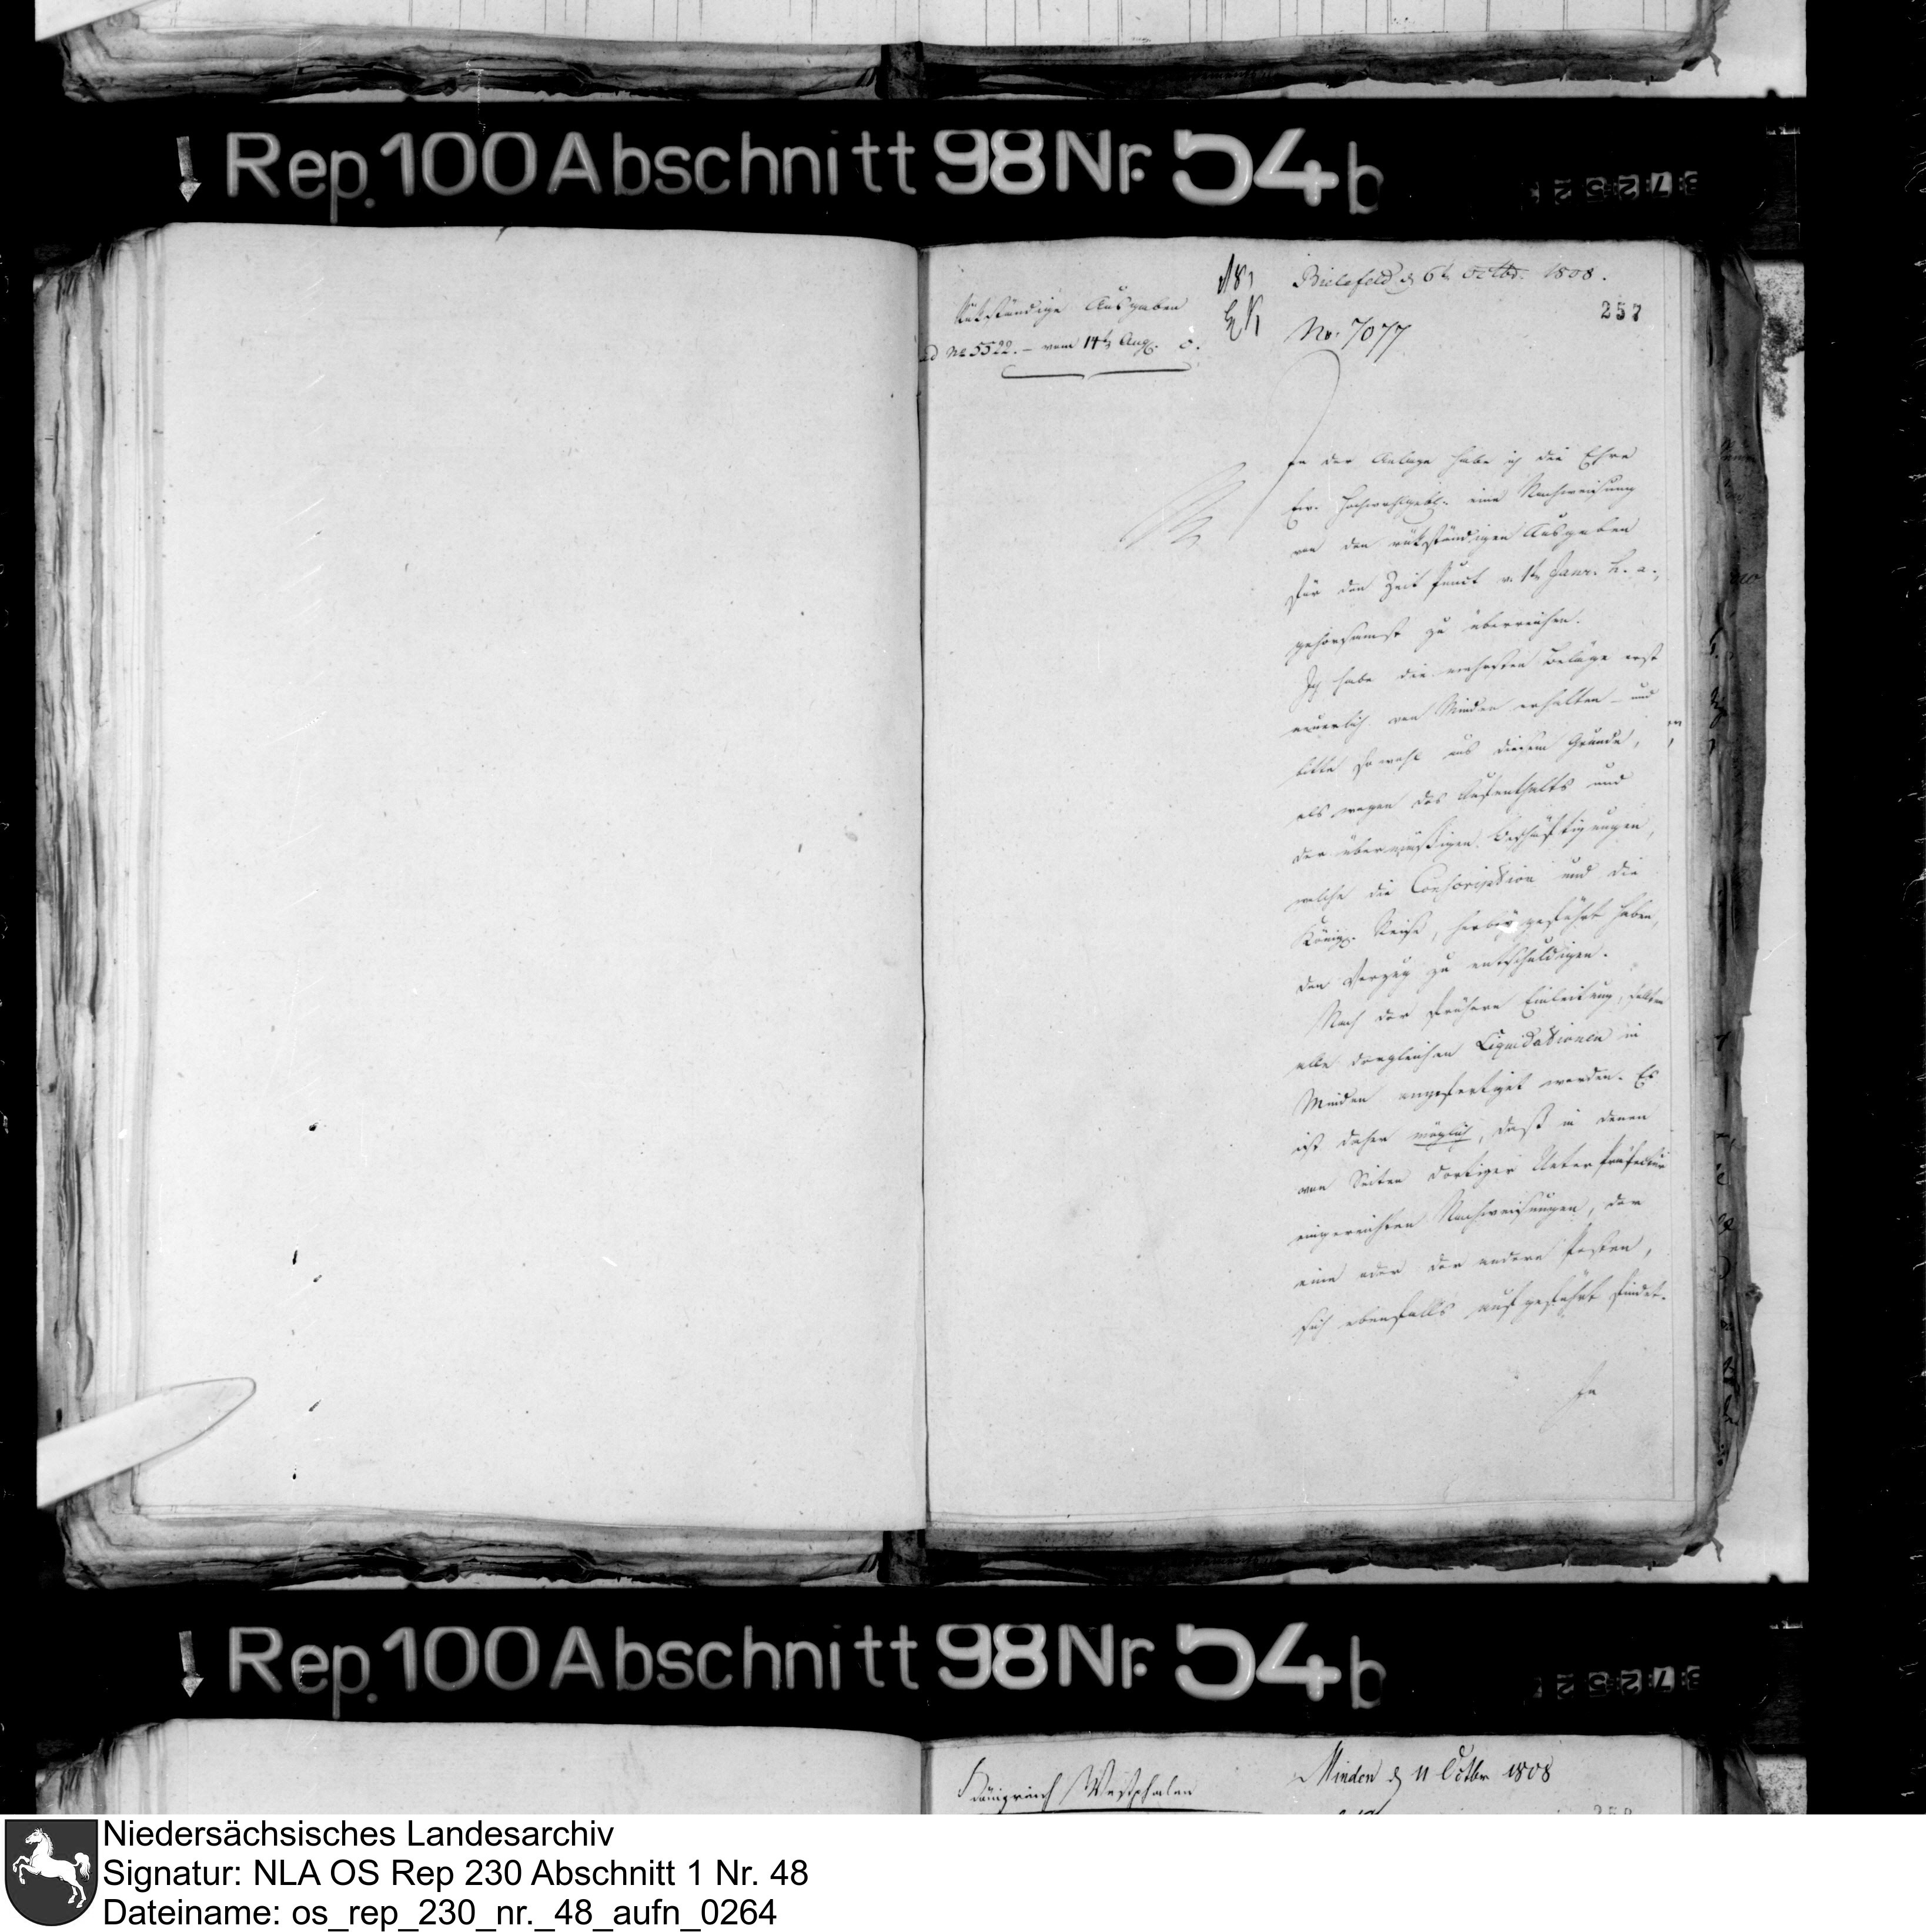 Rep. 100 Abschnitt 98 Nr. 54 b
37252
Rükständige Ausgaben
ad No 5522. - vom 14t Aug. c.
Bielefeld d 6t Octbr. 1808.
257
No. 7077
In der Anlage habe ich die Ehre
Ew. Hochwohlgebl. eine Nachweisung
von den rükständigen Ausgaben
für den Zeit Punct v. 1t Janr. h. a.,
gehorsamst zu überreichen.
Ich habe die mehrsten Beläge erst
neuerlich von Minden erhalten - und
bitte sowohl aus diesem Grunde,
als wegen des Aufenthalts und
der übermäßigen Beschäftigungen,
welche die Conscription und die
Königl. Reise, herbey geführt haben,
den Verzug zu entschuldigen.
Nach der frühern Einleitung, sollten
alle dergleichen Liquidationen in
Minden angefertiget werden. Es
ist daher möglich, daß in denen
von Seiten dortiger Unterpräfectur
eingereichten Nachweisungen, der
eine oder der andere Posten,
sich ebenfalls aufgeführt findet.
In
Rep. 100 Abschnitt 98 Nr. 54 b
37252
Königreich Westphalen
Minden d 11 Octbr 1808
Niedersächsisches Landesarchiv
Signatur: NLA OS Rep 230 Abschnitt 1 Nr. 48
Dateiname: os_rep_230_nr._48_aufn_0264